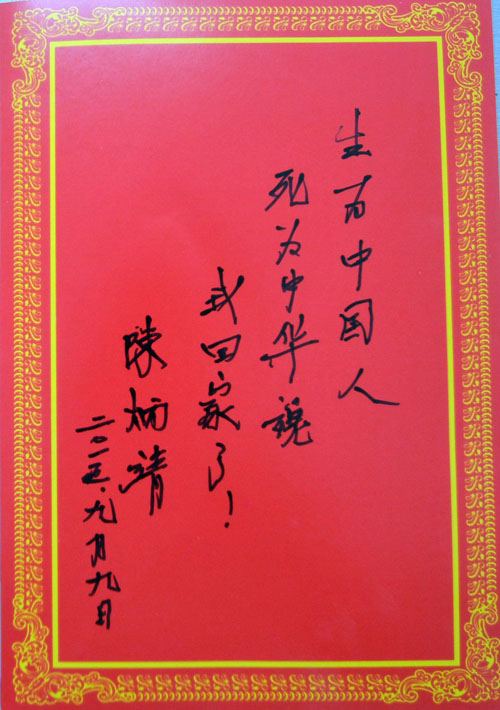 生为中国人
死为中华魂
我回家了！
陳炳靖
二〇一五.九月九日